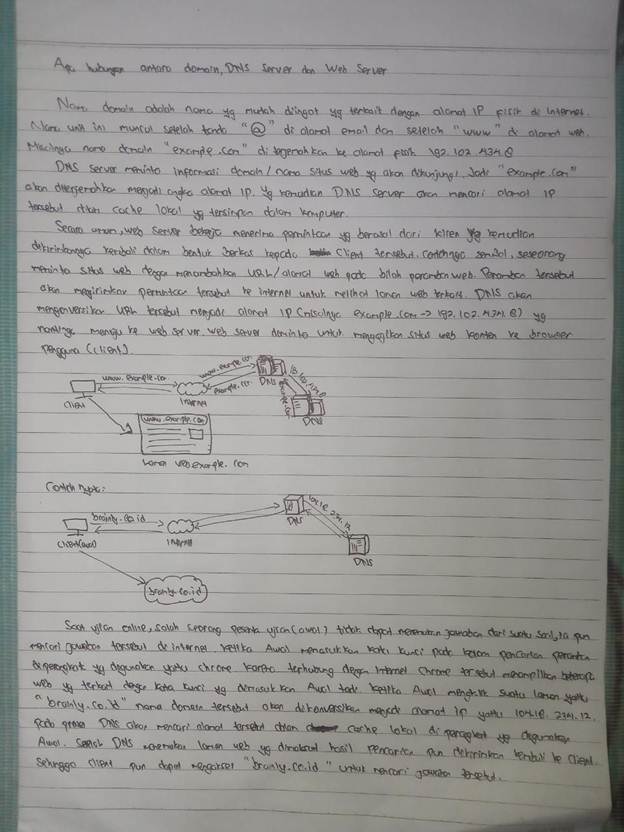 Apa hubungan antara domain, DNS Server dan Web Server
Nama domain adalah nama yg mudah diingat yg terkait dengan alamat IP fisik di Internet.
Nama unik ini muncul setelah tanda "@" di alamat email dan setelah "www" di alamat web.
Misalnya nama domain "example.com" diterjemahkan ke alamat fisik 192.102.434.8
DNS server meminta informasi domain/nama situs web yg akan dikunjungi. Jadi "example.com"
akan diterjemahkan menjadi angka alamat IP. Yg kemudian DNS server akan mencari alamat IP
tersebut dlam cache lokal yg tersimpan dalam komputer.
Secara umum, web server bekerja menerima permintaan yg berasal dari klien yg kemudian
dikirimkannya kembali dalam bentuk berkas kepada client tersebut. Contohnya, seseorang
meminta situs web dengan menambahkan URL/alamat web pada bilah peramban web. Peramban tersebut
akan mengirimkan permintaan tersebut ke internet untuk melihat laman web terkait. DNS akan
mengonversikan URL tersebut menjadi alamat IP (misalnya example.com -> 192.102.434.8) yg
nantinya menuju ke web server. Web server diminta untuk menyajikan situs web konten ke browser
pengguna (client).
www.example.com
www.example.com
example.com
CLIENT
INTERNET
DNS
DNS
www.example.com
Laman web example.com
Contoh nyata:
brainly.co.id
104.18.231.12
CLIENT (awal)
INTERNET
DNS
DNS
brainly.co.id
Saat ujian online, salah seorang peserta ujian (awal) tidak dapat menemukan jawaban dari suatu soal, ia pun
mencari jawaban tersebut di internet. Ketika Awal memasukkan kata kunci pada kolom pencarian peramban
diperangkat yg digunakan yaitu chrome karena terhubung dengan internet chrome tersebut menampilkan beberapa
web yg terkait dengan kata kunci yg dimasukkan Awal tadi. Ketika Awal mengklik suatu laman yaitu
"brainly.co.id" nama domain tersebut akan dikonversikan menjadi alamat IP yaitu 104.18.231.12.
pada proses DNS akan mencari alamat tersebut dlam cache lokal di perangkat yg digunakan
Awal. DNS menemukan laman web yg dimaksud hasil pencarian pun dikirimkan kembali ke client.
Sehingga client pun dapat mengakses "brainly.co.id" untuk mencari jawaban tersebut.